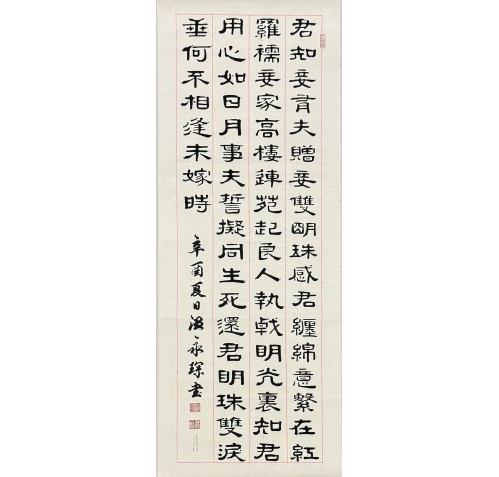 君知妾有夫贈妾雙明珠感君纏綿意繫在紅
羅襦妾家高樓連苑起良人執戟明光裏知君
用心如日月事夫誓擬同生死還君明珠雙淚
垂何不相逢未嫁時
辛酉夏日温永琛書